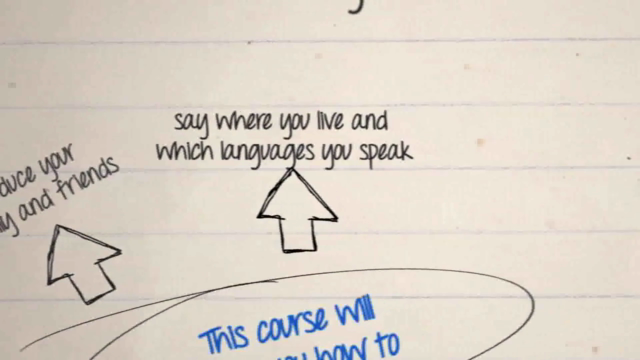 say where you live and
which languages you speak
your
and friends
This course will
you how to